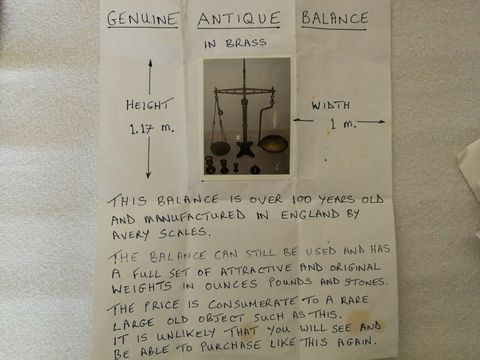 GENUINE ANTIQUE BALANCE
IN BRASS
HEIGHT
1.17 m.
WIDTH
1 m.
THIS BALANCE IS OVER 100 YEARS OLD
AND MANUFACTURED IN ENGLAND BY
AVERY SCALES.
THE BALANCE CAN STILL BE USED AND HAS
A FULL SET OF ATTRACTIVE AND ORIGINAL
WEIGHTS IN OUNCES POUNDS AND STONES.
THE PRICE IS CONSUMERATE TO A RARE
LARGE OLD OBJECT SUCH AS THIS.
IT IS UNLIKELY THAT YOU WILL SEE AND
BE ABLE TO PURCHASE LIKE THIS AGAIN.